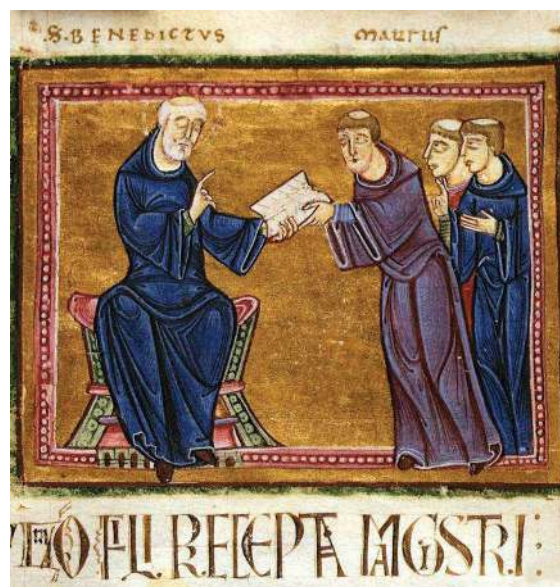 ·S·BENEDICTVS MAURUS
O FILI PRECEPTA MAGISTRI: